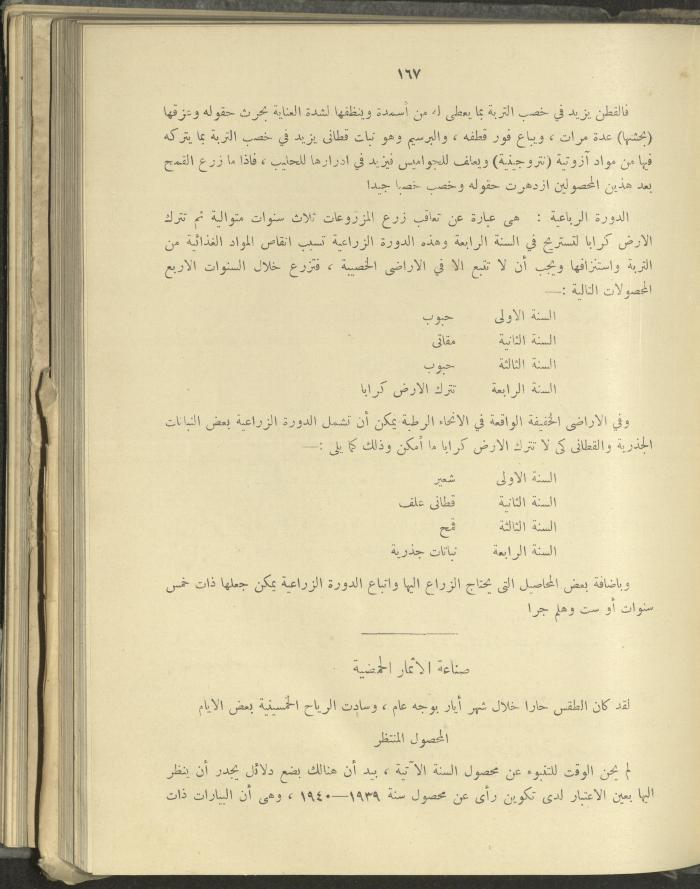 ١٦٧
فالقطن يزيد في خصب التربة بما يعطى له من أسمدة وينظفها لشدة العناية بحرث حقوله وعزقها
(بحشها) عدة مرات ، ويباع فور قطفه ، والبرسيم وهو نبات قطانى يزيد في خصب التربة بما يتركه
فيها من مواد آزوتية (نتروجينية) ويعلف للجواميس فيزيد في ادرارها للحليب ، فاذا ما زرع القمح
بعد هذين المحصولين ازدهرت حقوله وخصب خصبا جيدا
الدورة الرباعية : هى عبارة عن تعاقب زرع المزروعات ثلاث سنوات متوالية ثم تترك
الارض كرابا لتستريح في السنة الرابعة وهذه الدورة الزراعية تسبب انقاص المواد الغذائية من
التربة واستنزافها ويجب أن لا تتبع الا في الاراضى الخصيبة ، فتزرع خلال السنوات الاربع
المحصولات التالية :—
السنة الاولى حبوب
السنة الثانية مقاثى
السنة الثالثة حبوب
السنة الرابعة تترك الارض كرابا
وفي الاراضى الخفيفة الواقعة في الانحاء الرطبة يمكن أن تشمل الدورة الزراعية بعض النباتات
الجذرية والقطانى كى لا تترك الارض كرابا ما أمكن وذلك كما يلى :—
السنة الاولى شعير
السنة الثانية قطانى علف
السنة الثالثة قمح
السنة الرابعة نباتات جذرية
وباضافة بعض المحاصيل التى يحتاج الزراع اليها واتباع الدورة الزراعية يمكن جعلها ذات خمس
سنوات أو ست وهلم جرا
صناعة الاثمار الحمضية
لقد كان الطقس حارا خلال شهر أيار بوجه عام ، وسادت الرياح الخمسينية بعض الايام
المحصول المنتظر
لم يحن الوقت للتنبوء عن محصول السنة الآتية ، بيد أن هنالك بضع دلائل يجدر أن ينظر
اليها بعين الاعتبار لدى تكوين رأى عن محصول سنة ١٩٣٩—١٩٤٠ ، وهى أن البيارات ذات